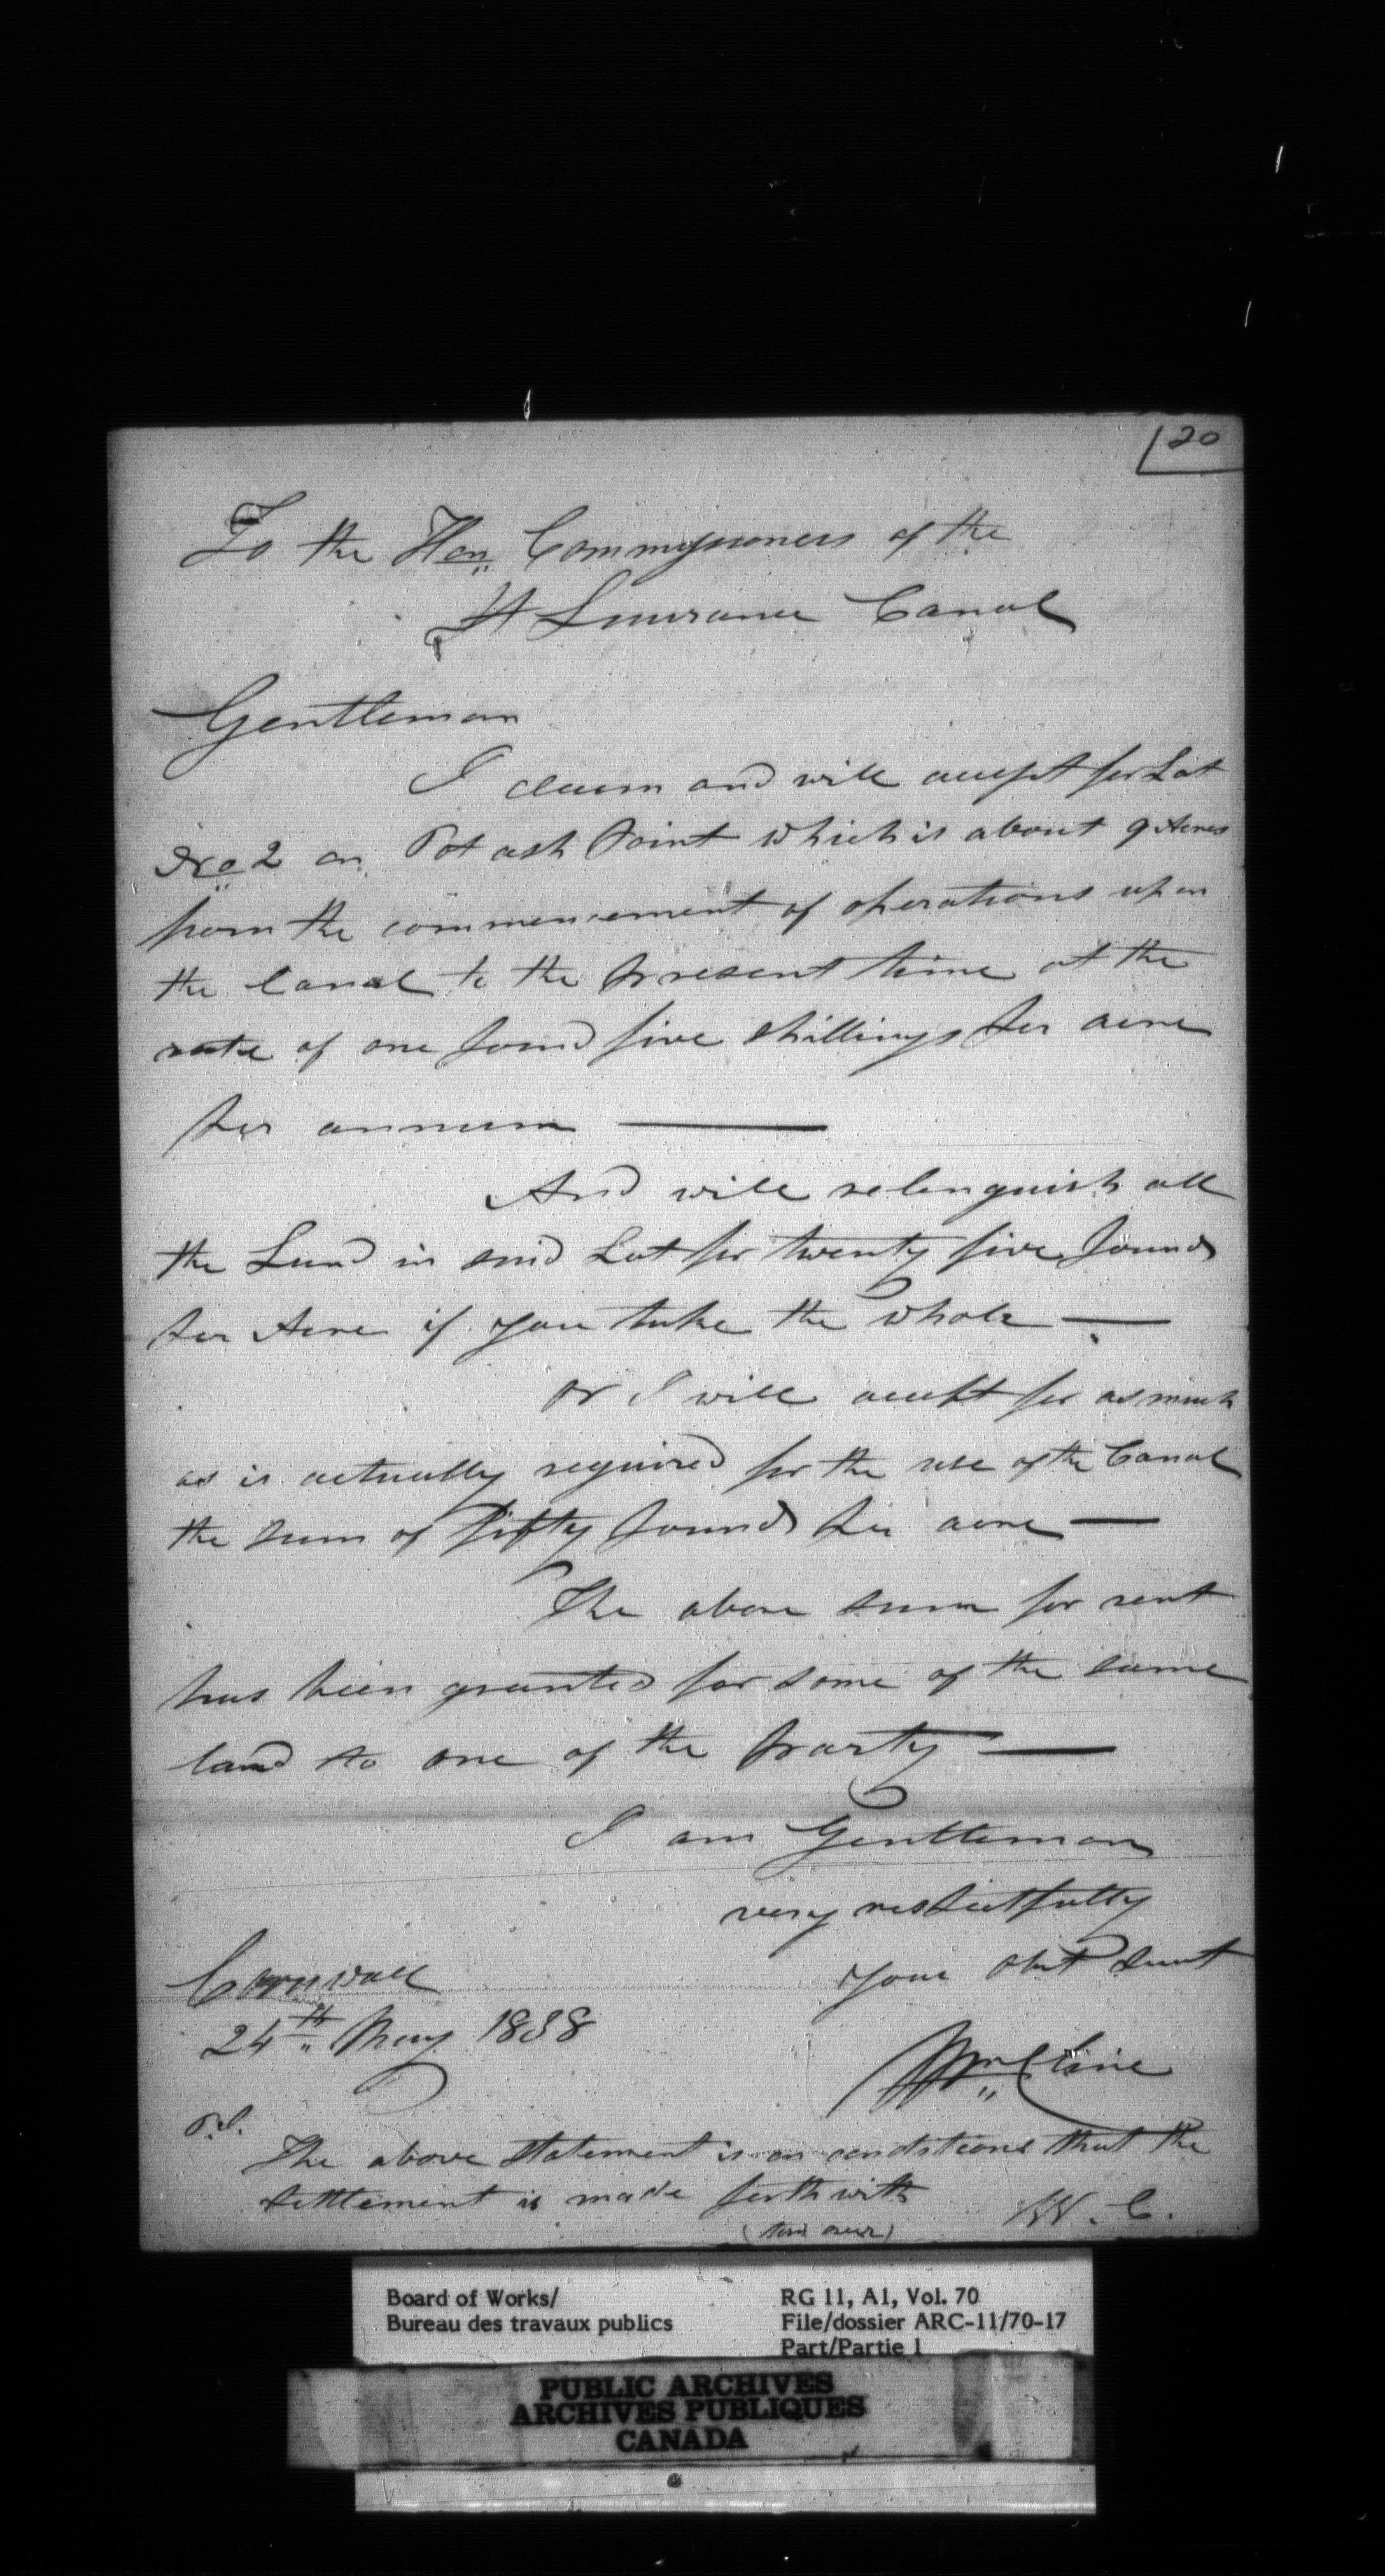 120
To the Hon Commissioners of the
St Lawrance Canal
Gentleman
I claim and will accept for Lot
No 2 on Pot ash Point which is about 9 Acres
from the commencement of operations upon
the Canal to the present time at the
rate of one pound five shillings per acre
per annum —
And will relinquish all
the Land in said Lot for twenty five pounds
per Acre if you take the whole —
or I will accept for as much
as is actually required for the use of the Canal
the sum of fifty pounds per acre —
The above sum for rent
has been granted for some of the same
land to one of the party —
I am Gentleman
very respectfully
your obt servt
Cornwall
24th May 1838
Wm Cline
P.S.
The above statement is on conditions that the
settlement is made forthwith
W. C.
(turn over)
Board of Works/
Bureau des travaux publics
RG 11, A1, Vol. 70
File/dossier ARC-11/70-17
Part/Partie 1
PUBLIC ARCHIVES
ARCHIVES PUBLIQUES
CANADA